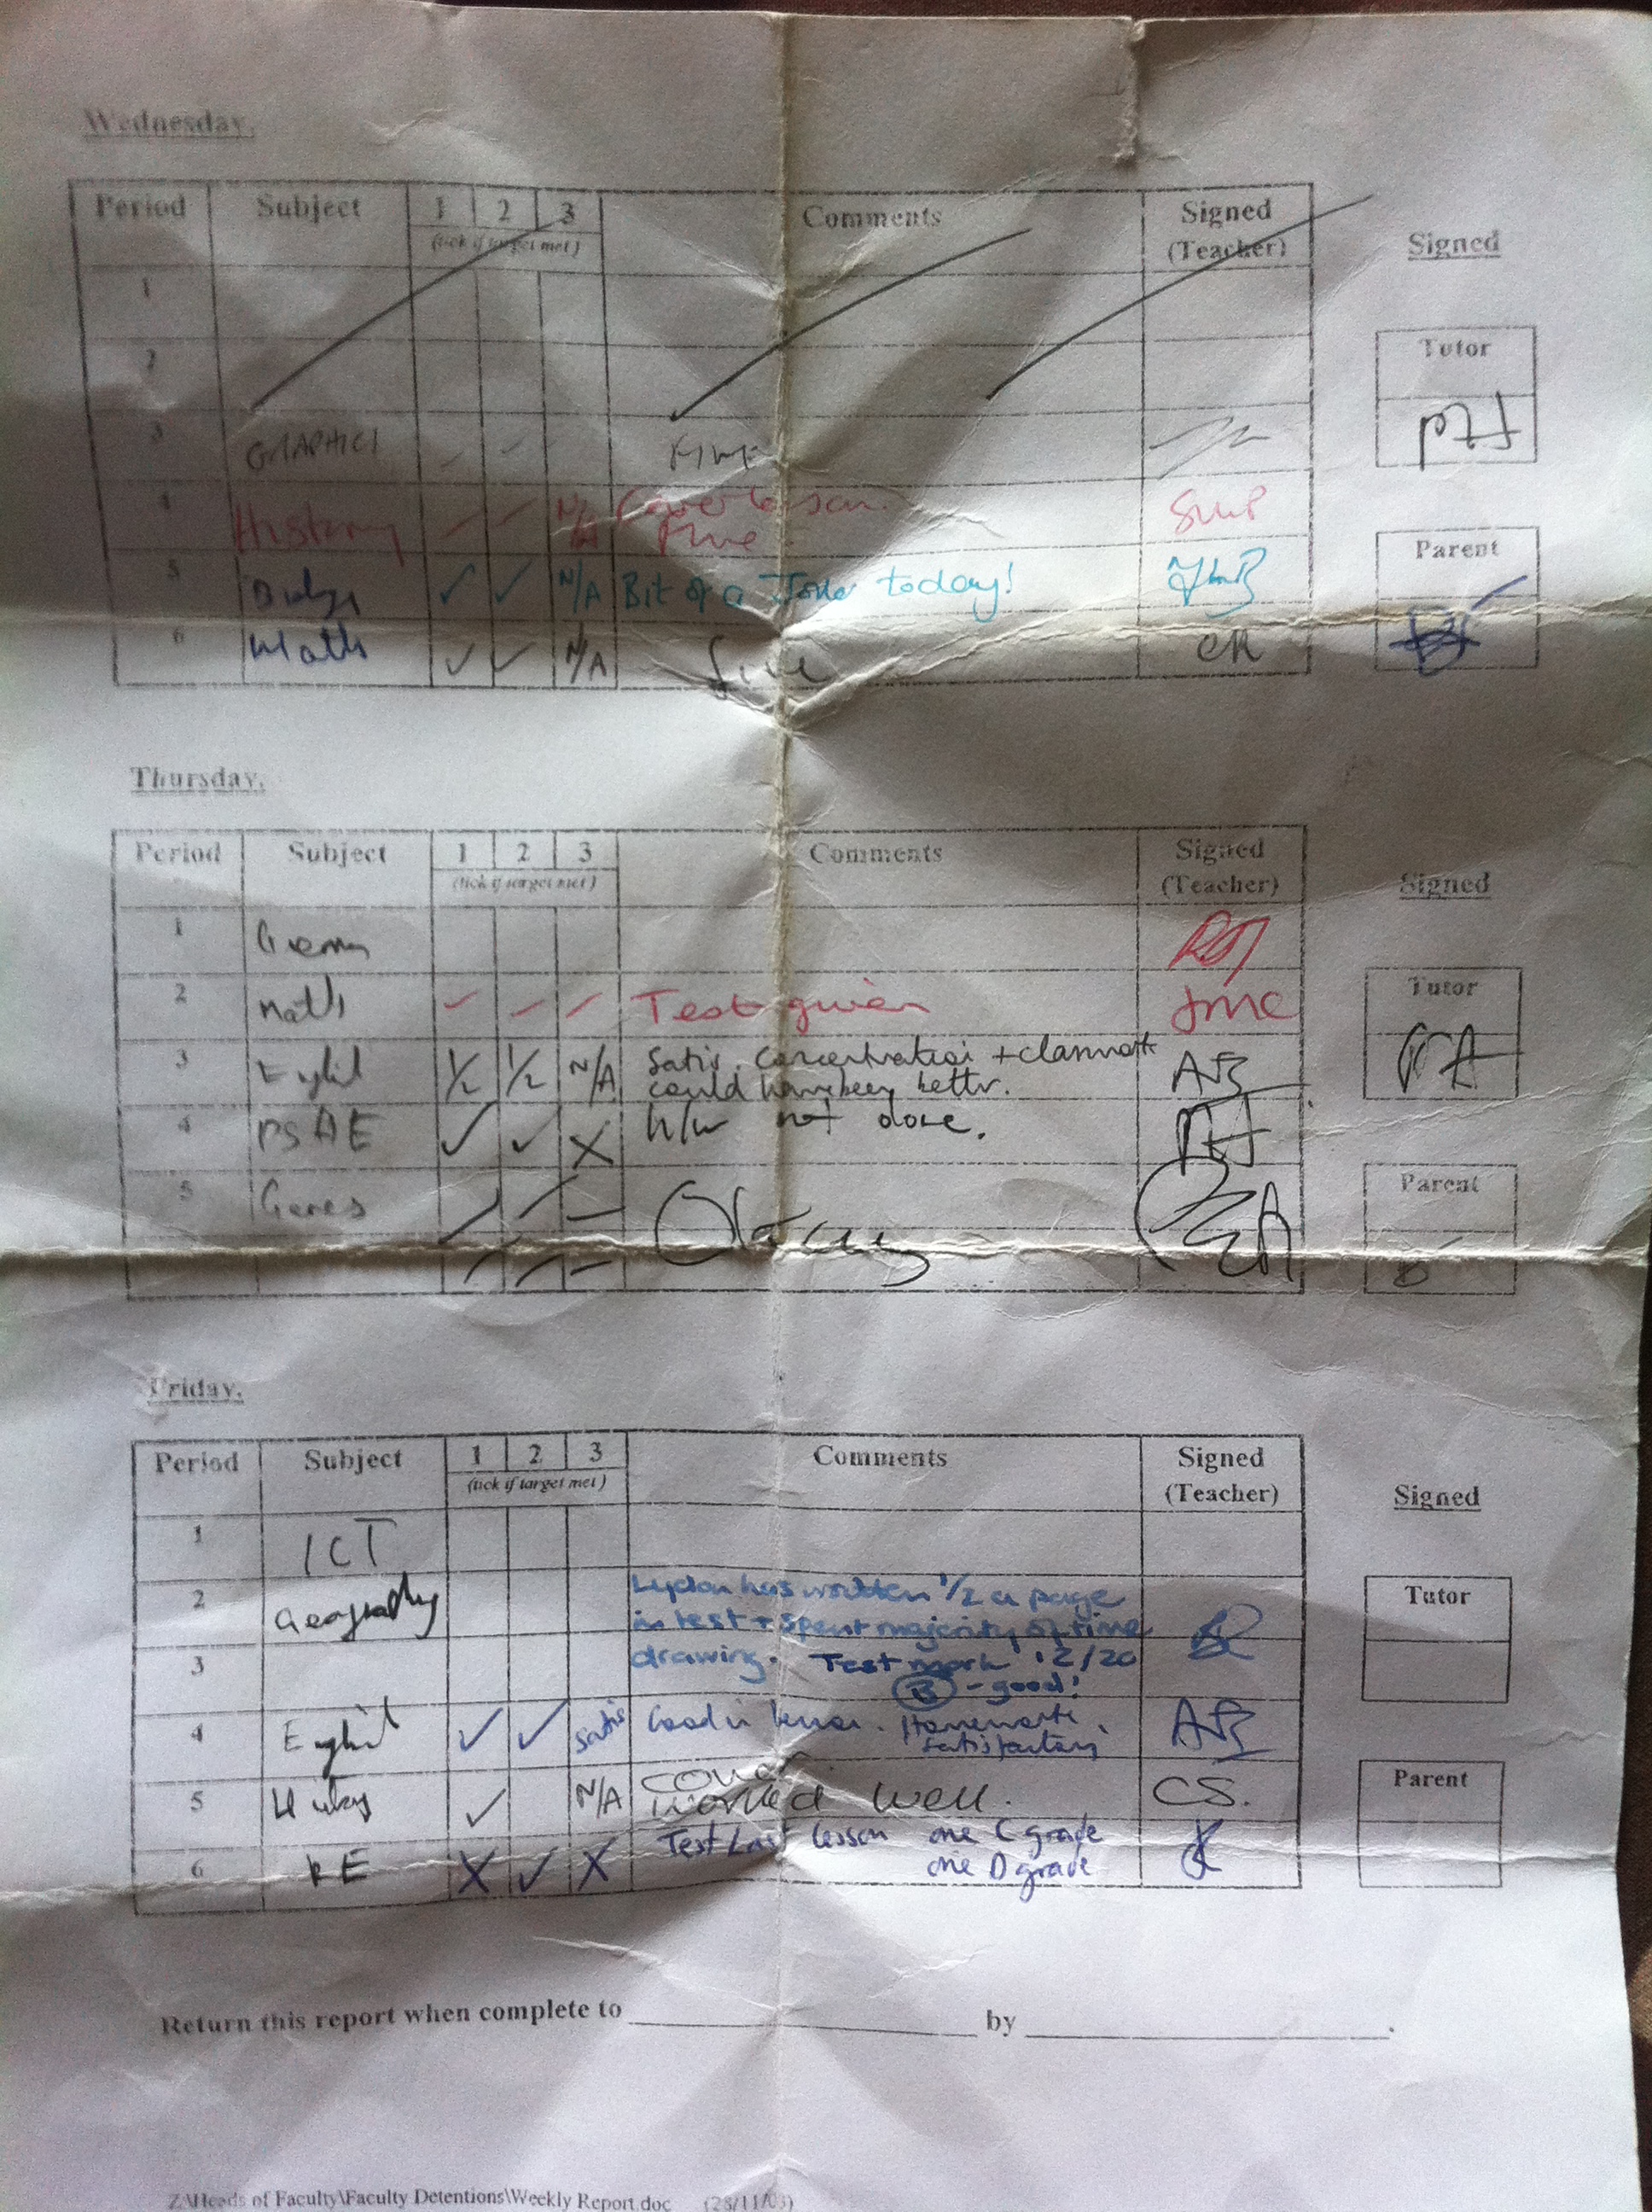 Wednesday.
Period Subject 1 2 3 Comments Signed
(tick if target met) (Teacher)
Signed
1
2
Tutor
3 GRAPHICS Fine
4 History N/A Cover lesson.
Fine SWP
Parent
5 N/A Bit of a Joker today!
6 Maths N/A fine
Thursday.
Period Subject 1 2 3 Comments Signed
(tick if target met) (Teacher)
Signed
1 German
2 Maths Test given JMC
Tutor
3 English 1/2 1/2 N/A Satis. Concentration + classwork
could have been better. AB
4 PSHE h/w not done.
5 Games Okay
Parent
Friday.
Period Subject 1 2 3 Comments Signed
(tick if target met) (Teacher)
Signed
1 ICT
2 Geography Lydon has written 1/2 a page
in test + spent majority of time
3 drawing. Test mark 12/20
B - good!
Tutor
4 English satis Good in lesson. Homework
satisfactory AB
5 N/A cover
worked well. CS.
Parent
6 RE Test Last lesson one C grade
one D grade
Return this report when complete to by .
Z:\Heads of Faculty\Faculty Detentions\Weekly Report.doc (28/11/03)